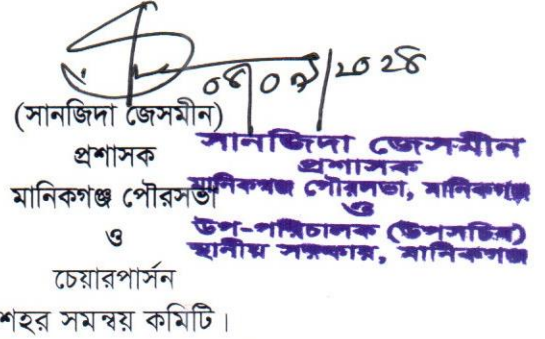 ০৪/০৯/২০২৪
(সানজিদা জেসমীন)
প্রশাসক
মানিকগঞ্জ পৌরসভা
ও
চেয়ারপার্সন
শহর সমন্বয় কমিটি।
সানজিদা জেসমীন
প্রশাসক
মানিকগঞ্জ পৌরসভা, মানিকগঞ্জ
ও
উপ-পরিচালক (উপসচিব)
স্থানীয় সরকার, মানিকগঞ্জ